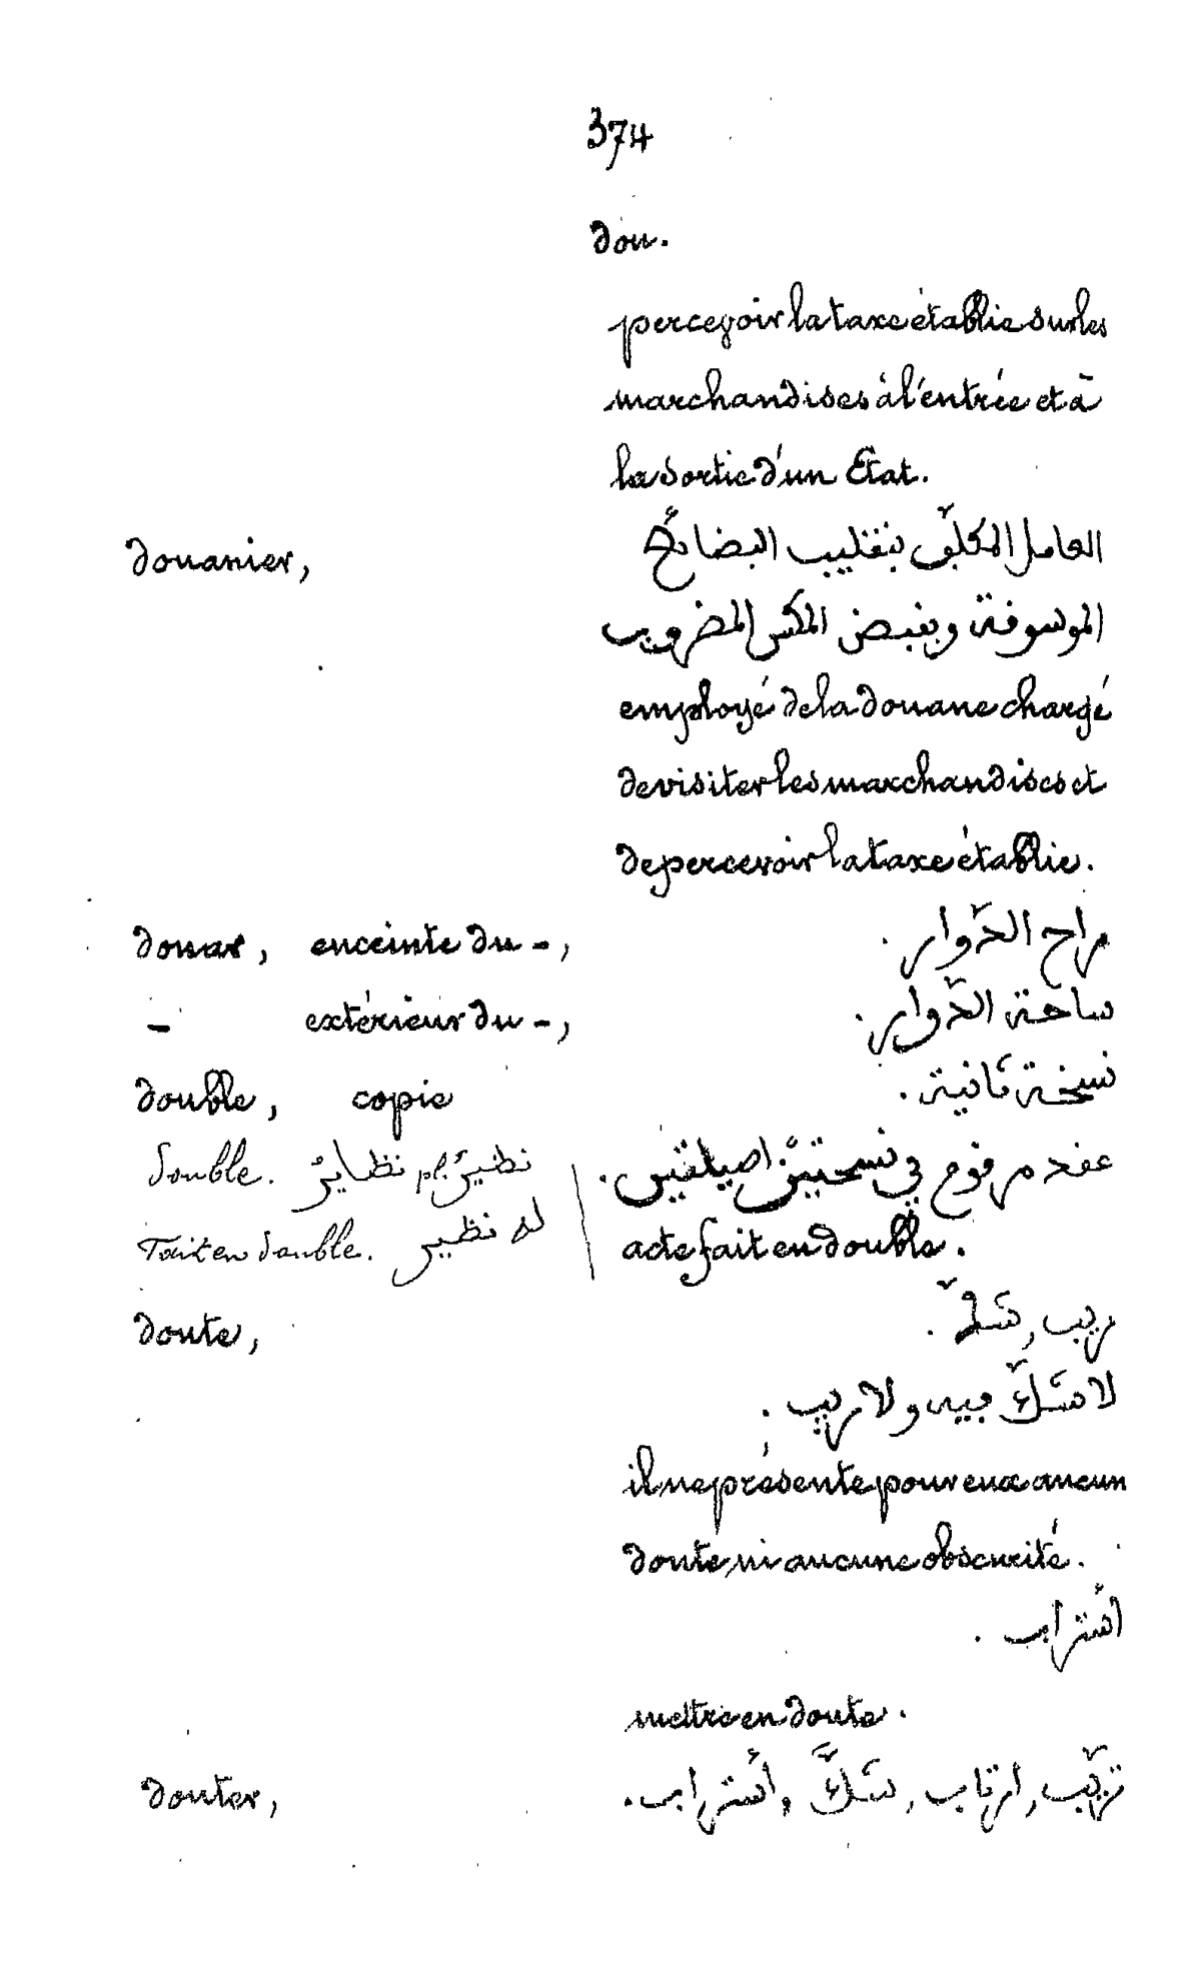 374
dou.
percevoir la taxe établie sur les
marchandises à l'entrée et à
la sortie d'un État.
douanier, العامل المكلّف بتقليب البضائع
الموسوقة وبقبض المكس المضروب
employé de la douane chargé
de visiter les marchandises et
de percevoir la taxe établie.
douar, enceinte du -, مراح الدّوار.
- extérieur du -, ساحة الدّوار.
double, copie نسخة ثانية.
double. نظير ج نظاير عقد مرقوم في نسختين اصيلتين.
Fait en double. له نظير acte fait en double.
doute, ريب, شكّ.
لا شكّ فيه ولا ريب.
il ne présente pour eux aucun
doute, ni aucune obscurité.
استراب.
mettre en doute.
douter, تريّب, ارتاب, شكّ, استراب.